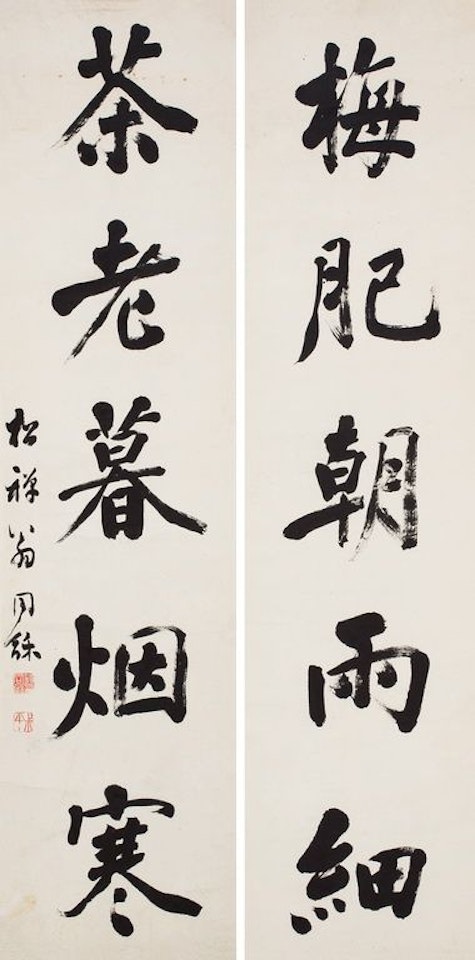 梅肥朝雨細
茶老暮烟寒
松禅翁同龢